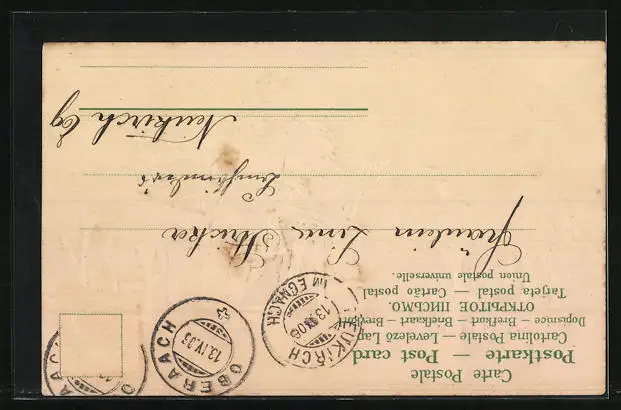 Carte Postale
Postkarte — Post card
Cartolina Postale — Levelező Lap
Dopisnice — Brefkort — Briefkaart — Brevkort
ОТКРЫТОЕ ПИСЬМО.
Tarjeta postal — Cartão postal
Union postale universelle.
NEUKIRCH
13 06
IM EGNACH
OBERAACH
12.IV.06
OBERAACH
Fräulein Lina Stricker
Neukirch Eg